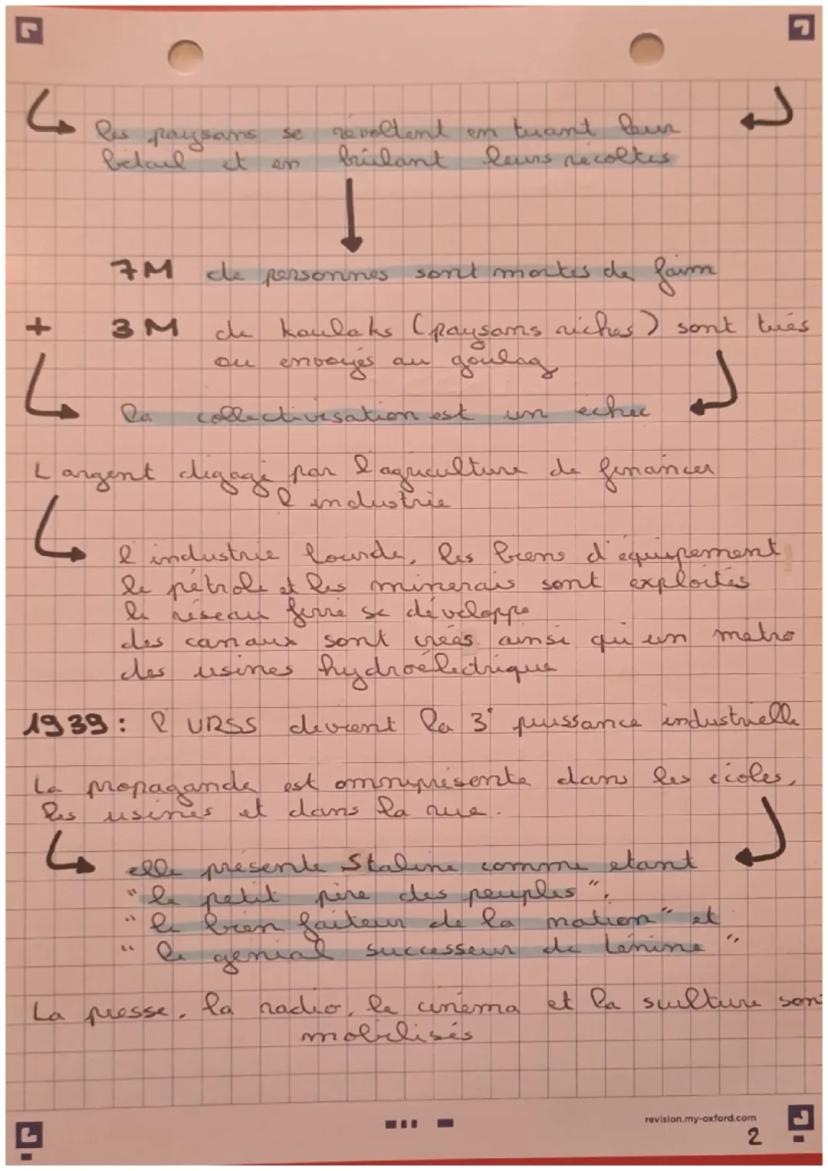 les paysans se révoltent en tuant leur
betail et en brûlant leurs récoltes
7M de personnes sont mortes de faim
+ 3M de koulaks (paysans riches) sont tués
ou envoyés au goulag
la collectivisation est un échec
L argent dégagé par l'agriculture de financer
l industrie
l industrie lourde, les biens d'équipement
le pétrole et les minerais sont exploités
le réseau ferré se développe
des canaux sont créés ainsi qu'un metro
des usines hydroélectrique
1939 : l URSS devient la 3e puissance industrielle
La propagande est omniprésente dans les écoles,
les usines et dans la rue.
elle présente Staline comme etant
"le petit père des peuples",
"le bien faiteur de la nation" et
"le génial successeur de Lénine",
La presse, la radio, le cinéma et la sculture son
mobilisés
revision.my-oxford.com
2